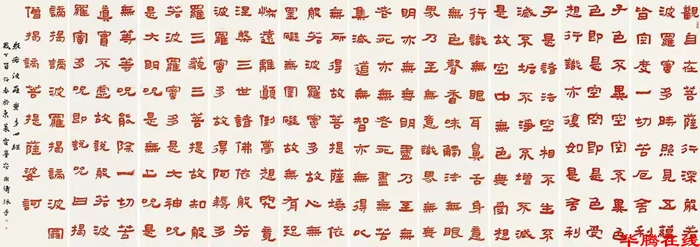 觀自在菩薩行深般若
波羅蜜多時照見五蘊
皆空度一切苦厄舍利
子色不異空空不異色
色即是空空即是色受
想行識亦復如是舍利
子是諸法空相不生不
滅不垢不淨不增不減
是故空中無色無受想
行識無眼耳鼻舌身意
無色聲香味觸法無眼
界乃至無意識界無無
明亦無無明盡乃至無
老死亦無老死盡無苦
集滅道無智亦無得以
無所得故菩提薩埵依
般若波羅蜜多故心無
罣礙無罣礙故無有恐
怖遠離顛倒夢想究竟
涅槃三世諸佛依般若
波羅蜜多故得阿耨多
羅三藐三菩提故知般
若波羅蜜多是大神咒
是大明咒是無上咒是
無等等咒能除一切苦
真實不虛故說般若波
羅蜜多咒即說咒曰揭
諦揭諦波羅揭諦波羅
僧揭諦菩提薩婆訶
般若波羅蜜多心經
华腾在线